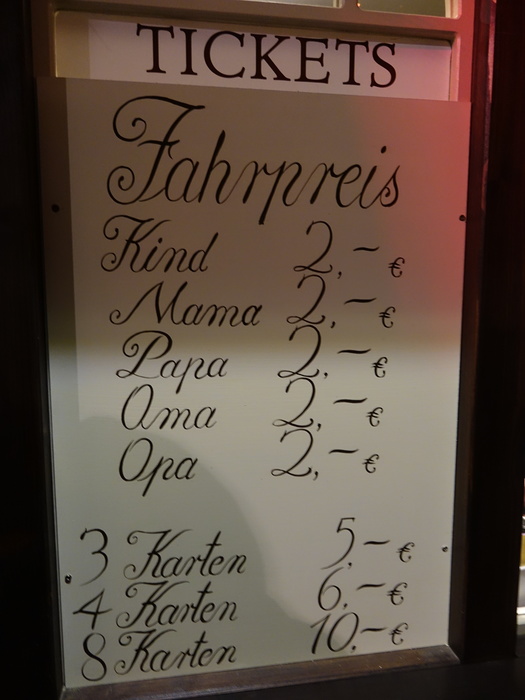 TICKETS
Fahrpreis
Kind 2,-€
Mama 2,-€
Papa 2,-€
Oma 2,-€
Opa 2,-€
3 Karten 5,-€
4 Karten 6,-€
8 Karten 10,-€